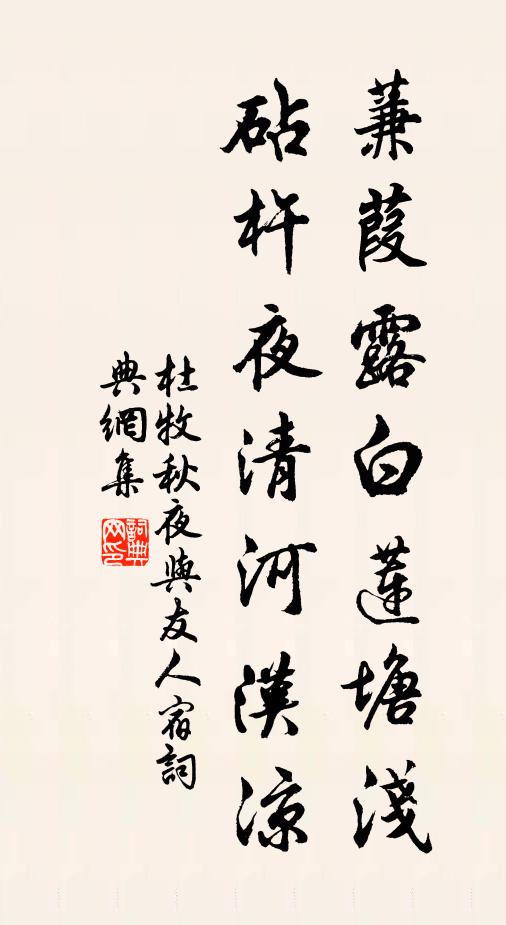 蒹葭露白蓮塘淺
砧杵夜清河漢涼
杜牧秋夜與友人宿詞
典網集
詞典網印